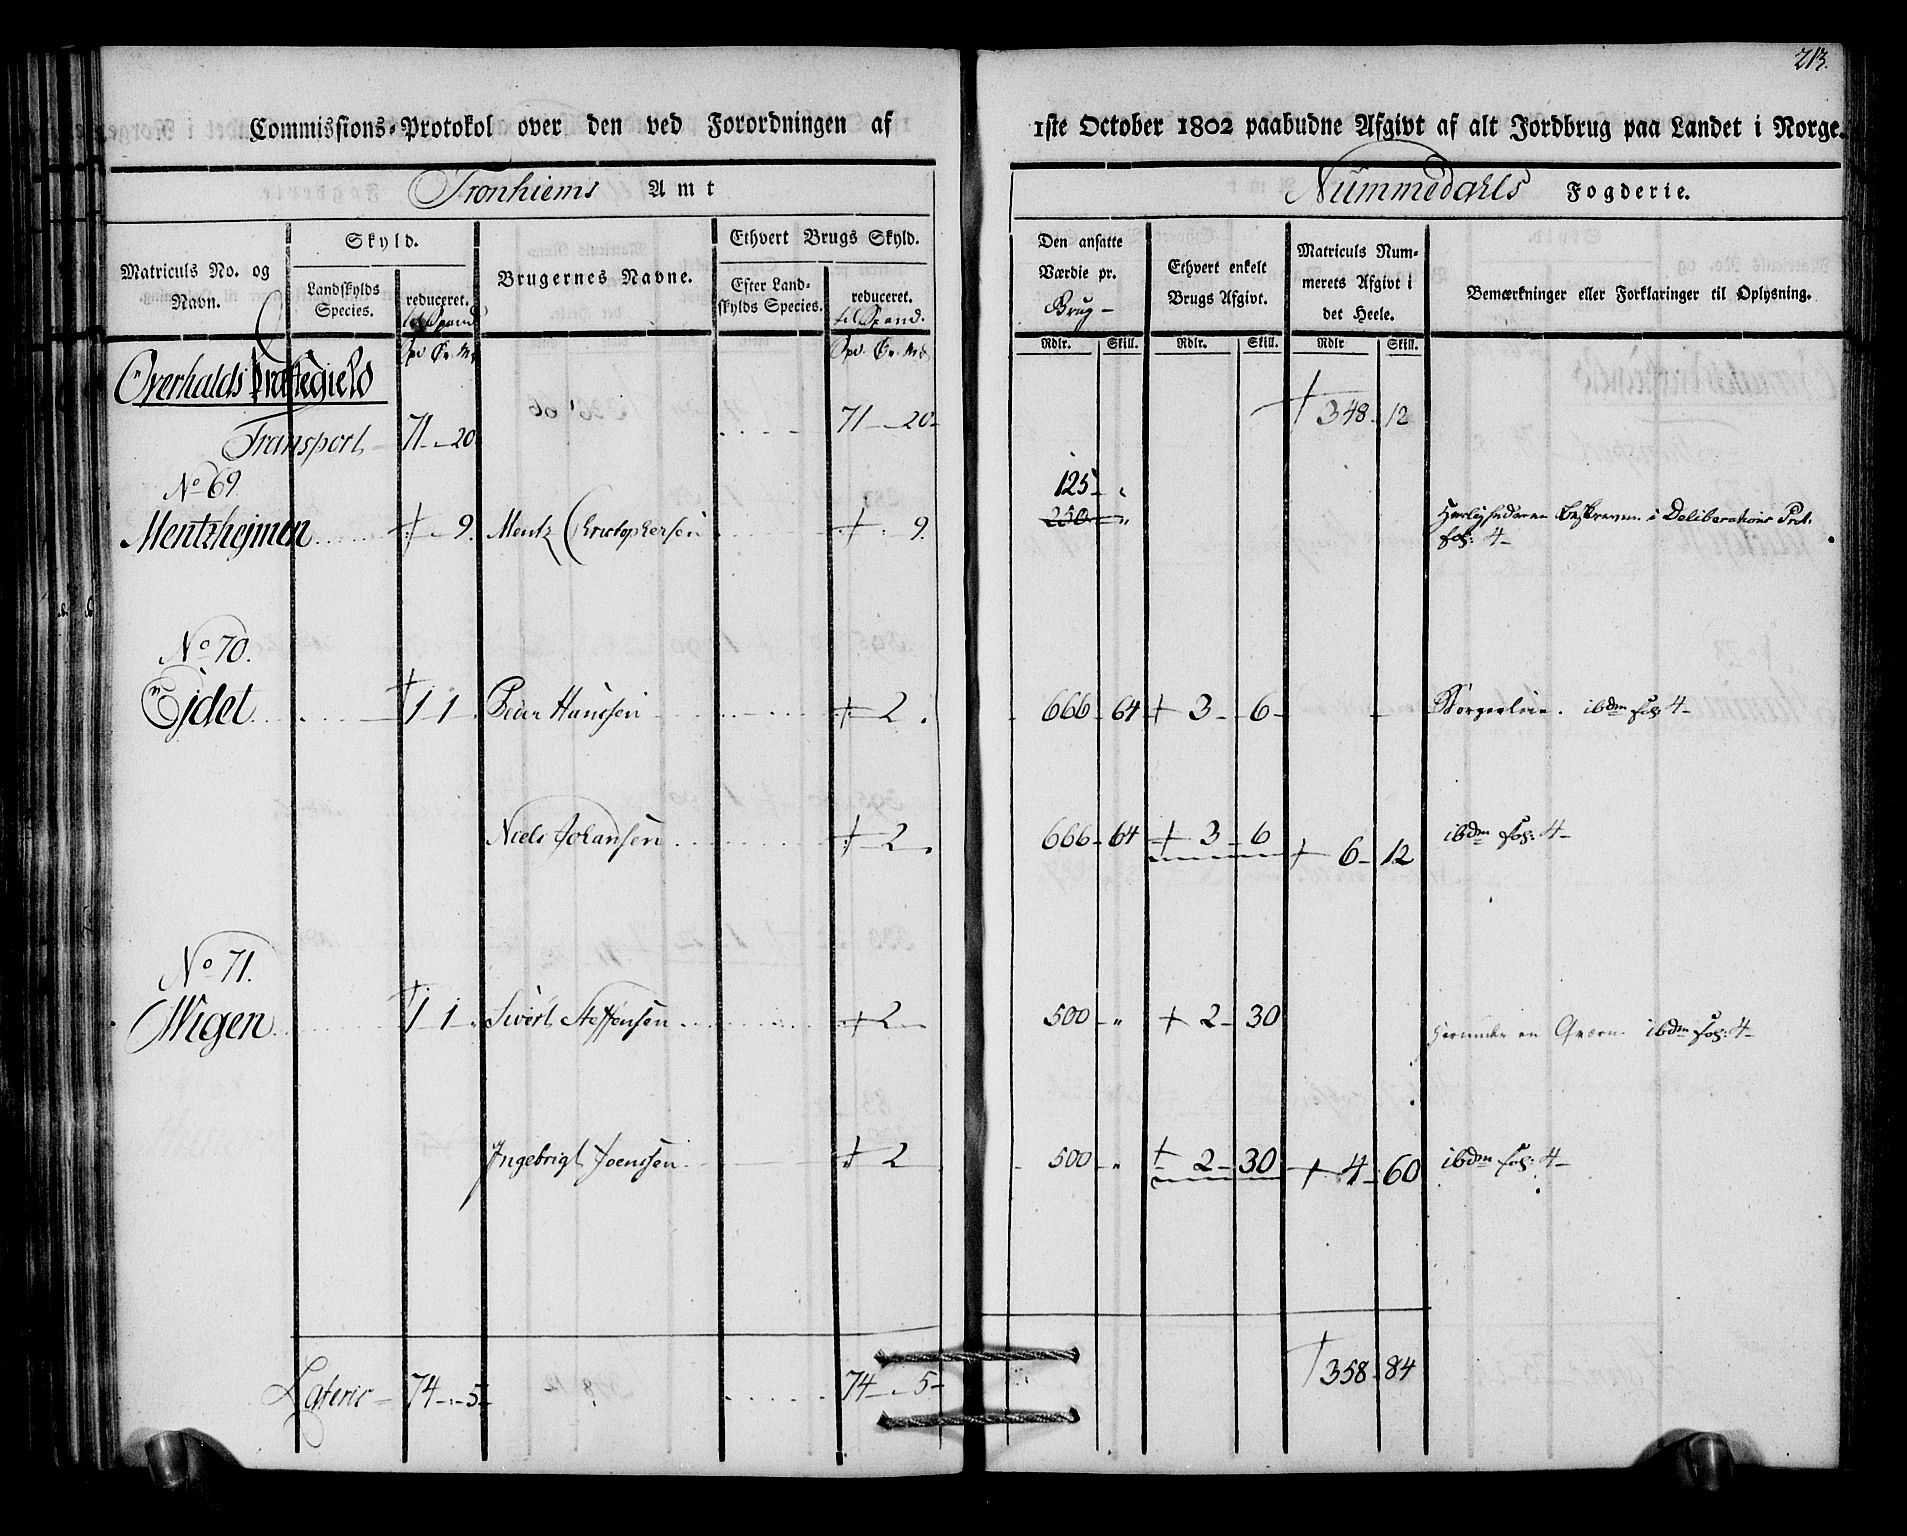 213.
Commissions-Protokol over den ved Forordningen af 1ste October 1802 paabudne Afgivt af alt Jordbrug paa Landet i Norge.
Tronhiems Amt
Nummedahls Fogderie.
Matriculs No. og Navn.
Skyld.
Landskylds Species.
reduceret. til Spand
Brugernes Navne.
Ethvert Brugs Skyld.
Efter Landskylds Species.
reduceret. til Spand.
Den ansatte Værdie pr. Brug
Ethvert enkelt Brugs Afgivt.
Matriculs Nummerets Afgivt i det Heele.
Bemærkninger eller Forklaringer til Oplysning.
Rdlr. Skill. Rdlr. Skill. Rdlr Skill.
Overhalds Præstegield
Transport 71 - 20 71 - 20 348 - 12
No 69.
125 - "
Mentzhejmen 9. Mentz Christophersen 9. 250 " i Deliberations Prot. fol: 4
No 70.
Ejdet 1 - 1 Peder Hanssen 2. 666 - 64 3 - 6 ibdm fol: 4
Niels Johansen 2. 666 - 64 3 - 6 6 - 12 ibdm fol: 4
No 71.
Wigen 1 - 1 Sivert Steffensen 2 500 - " 2 - 30 Herunder en Qværn ibdm fol: 4
Ingebrigt Joenssen 2 500 - " 2 - 30 4 - 60 ibdm fol: 4
Lateris 74 - 5 74 - 5 358 - 84